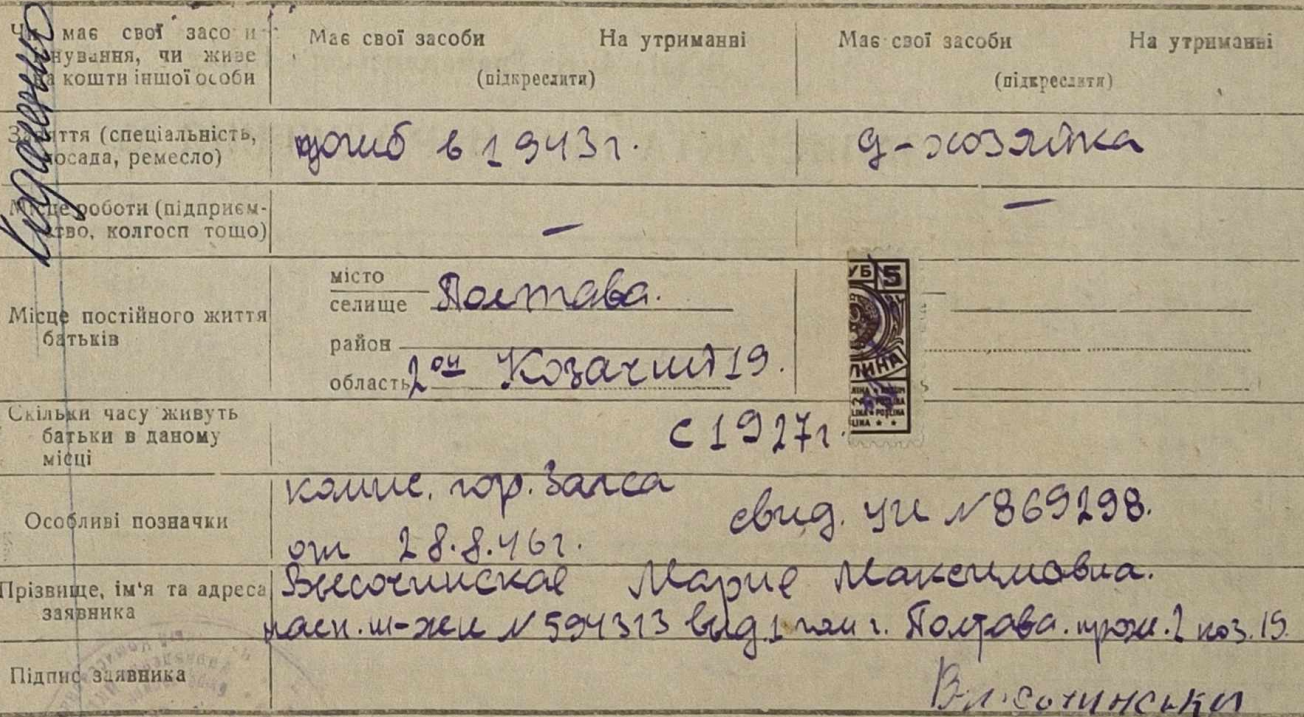 Чи має свої засо и
нування, чи живе
а кошти іншої особи
Має свої засоби На утриманні
(підкреслити)
Має свої засоби На утриманні
(підкреслити)
Заняття (спеціальність,
посада, ремесло)
погиб в 1943 г.
д-хозяйка
Місце роботи (підприєм-
ство, колгосп тощо)
—
—
Місце постійного життя
батьків
місто
селище Полтава.
район
область 2ой Козачий 19.
УБ 5
Скільки часу живуть
батьки в даному
місці
с 1927 г.
Особливі позначки
комис. гор. Загса
от 28.8.46 г.
свид. УИ №869298.
Прізвище, ім'я та адреса
заявника
Височинская Мария Максимовна.
№ 594313 выд. 1 г. Полтава. прож. 2 коз. 19.
Підпис заявника